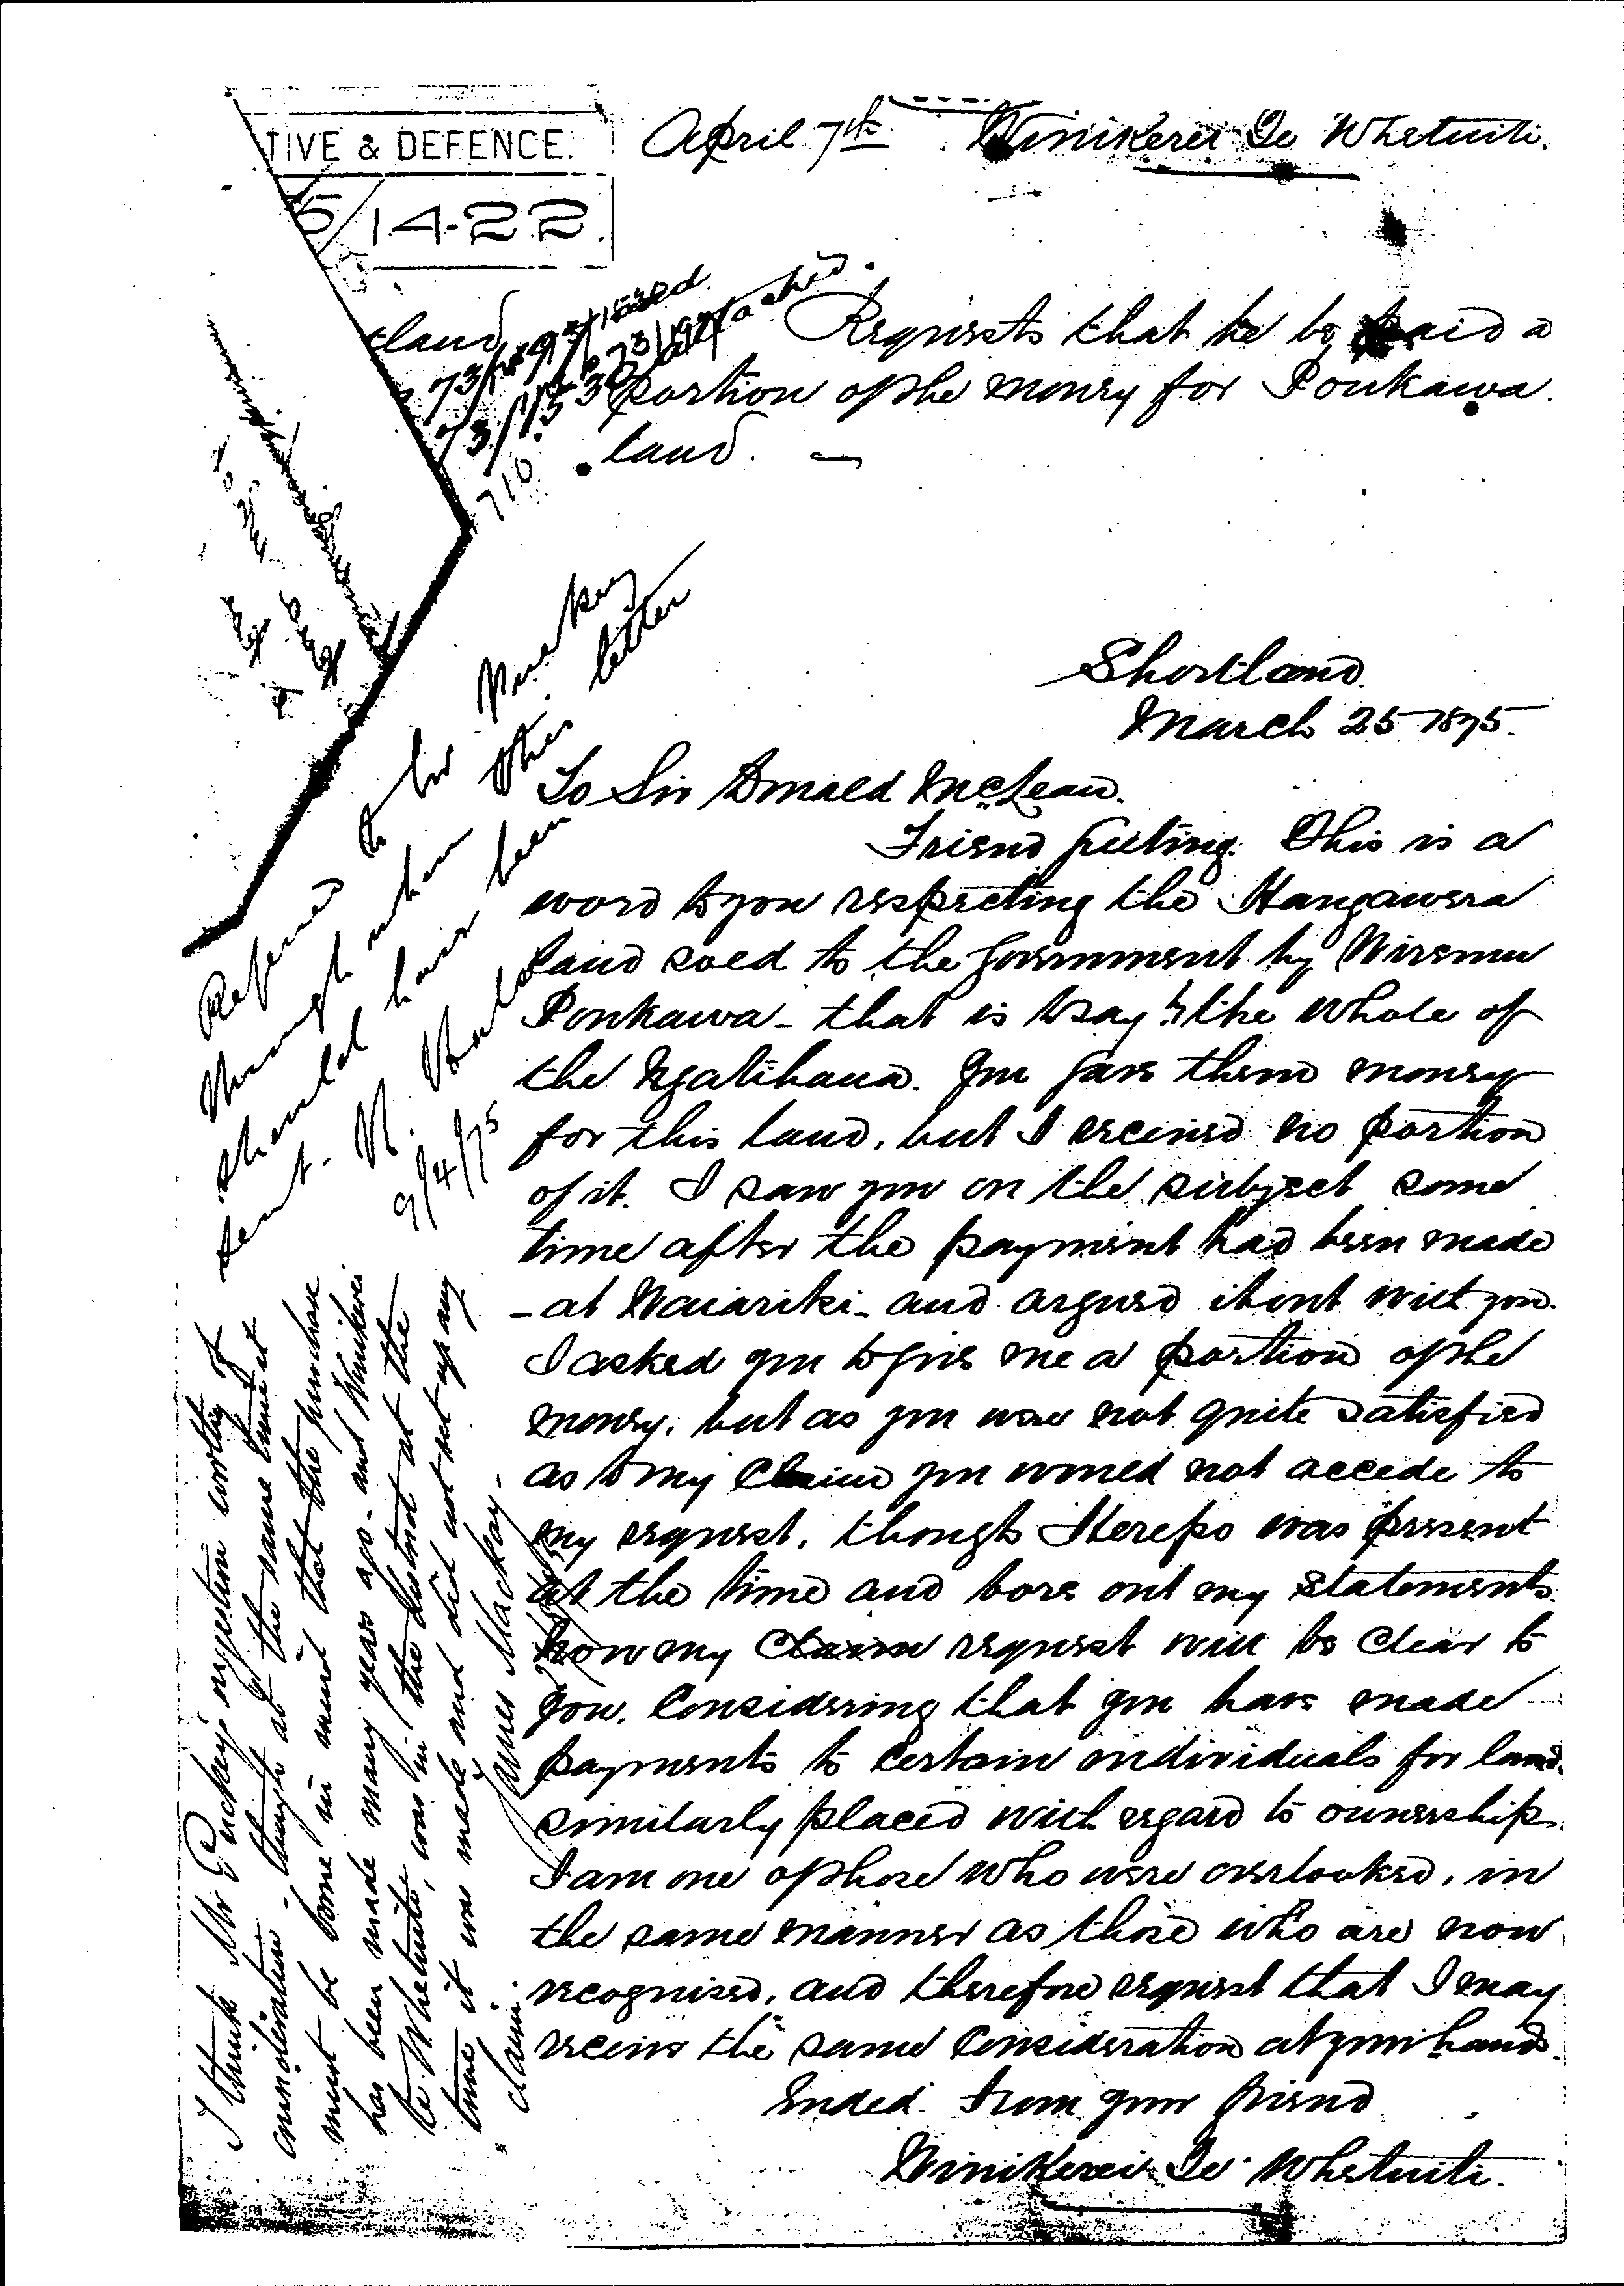 TIVE & DEFENCE.
5/1422.
April 7th Winikerei Te Whetuiti.
Requests that he be paid a
portion of the money for Poukawa
land.
Shortland
March 25 1875.
To Sir Donald McLean.
Friend greeting. This is a
word to you respecting the Hangawera
land sold to the Government by Wiremu
Poukawa - that is to say by the whole of
the Ngatihaua. You gave them money
for this land, but I received no portion
of it. I saw you on the subject some
time after the payment had been made
- at Waiariki - and argued it out with you.
I asked you to give me a portion of the
money, but as you were not quite satisfied
as to my claim you would not accede to
my request, though Herepo was present
at the time and bore out my statements.
Now my claim request will be clear to
you. Considering that you have made
payments to certain individuals for land
similarly placed with regard to ownership.
I am one of those who were overlooked, in
the same manner as those who are now
recognised, and therefore request that I may
receive the same consideration at your hands.
Ended. From your friend
Winikerei Te Whetuiti.
Referred to Mr Puckey
through whom this letter
should have been
sent.
9/4/75
I think Mr Puckey's suggestion worthy of
consideration - though at the same time it
must be borne in mind that the purchase
has been made many years ago - and Winikerei
te Whetuiti, was in the district at the
time it was made and did not set up any
claim.
James Mackay